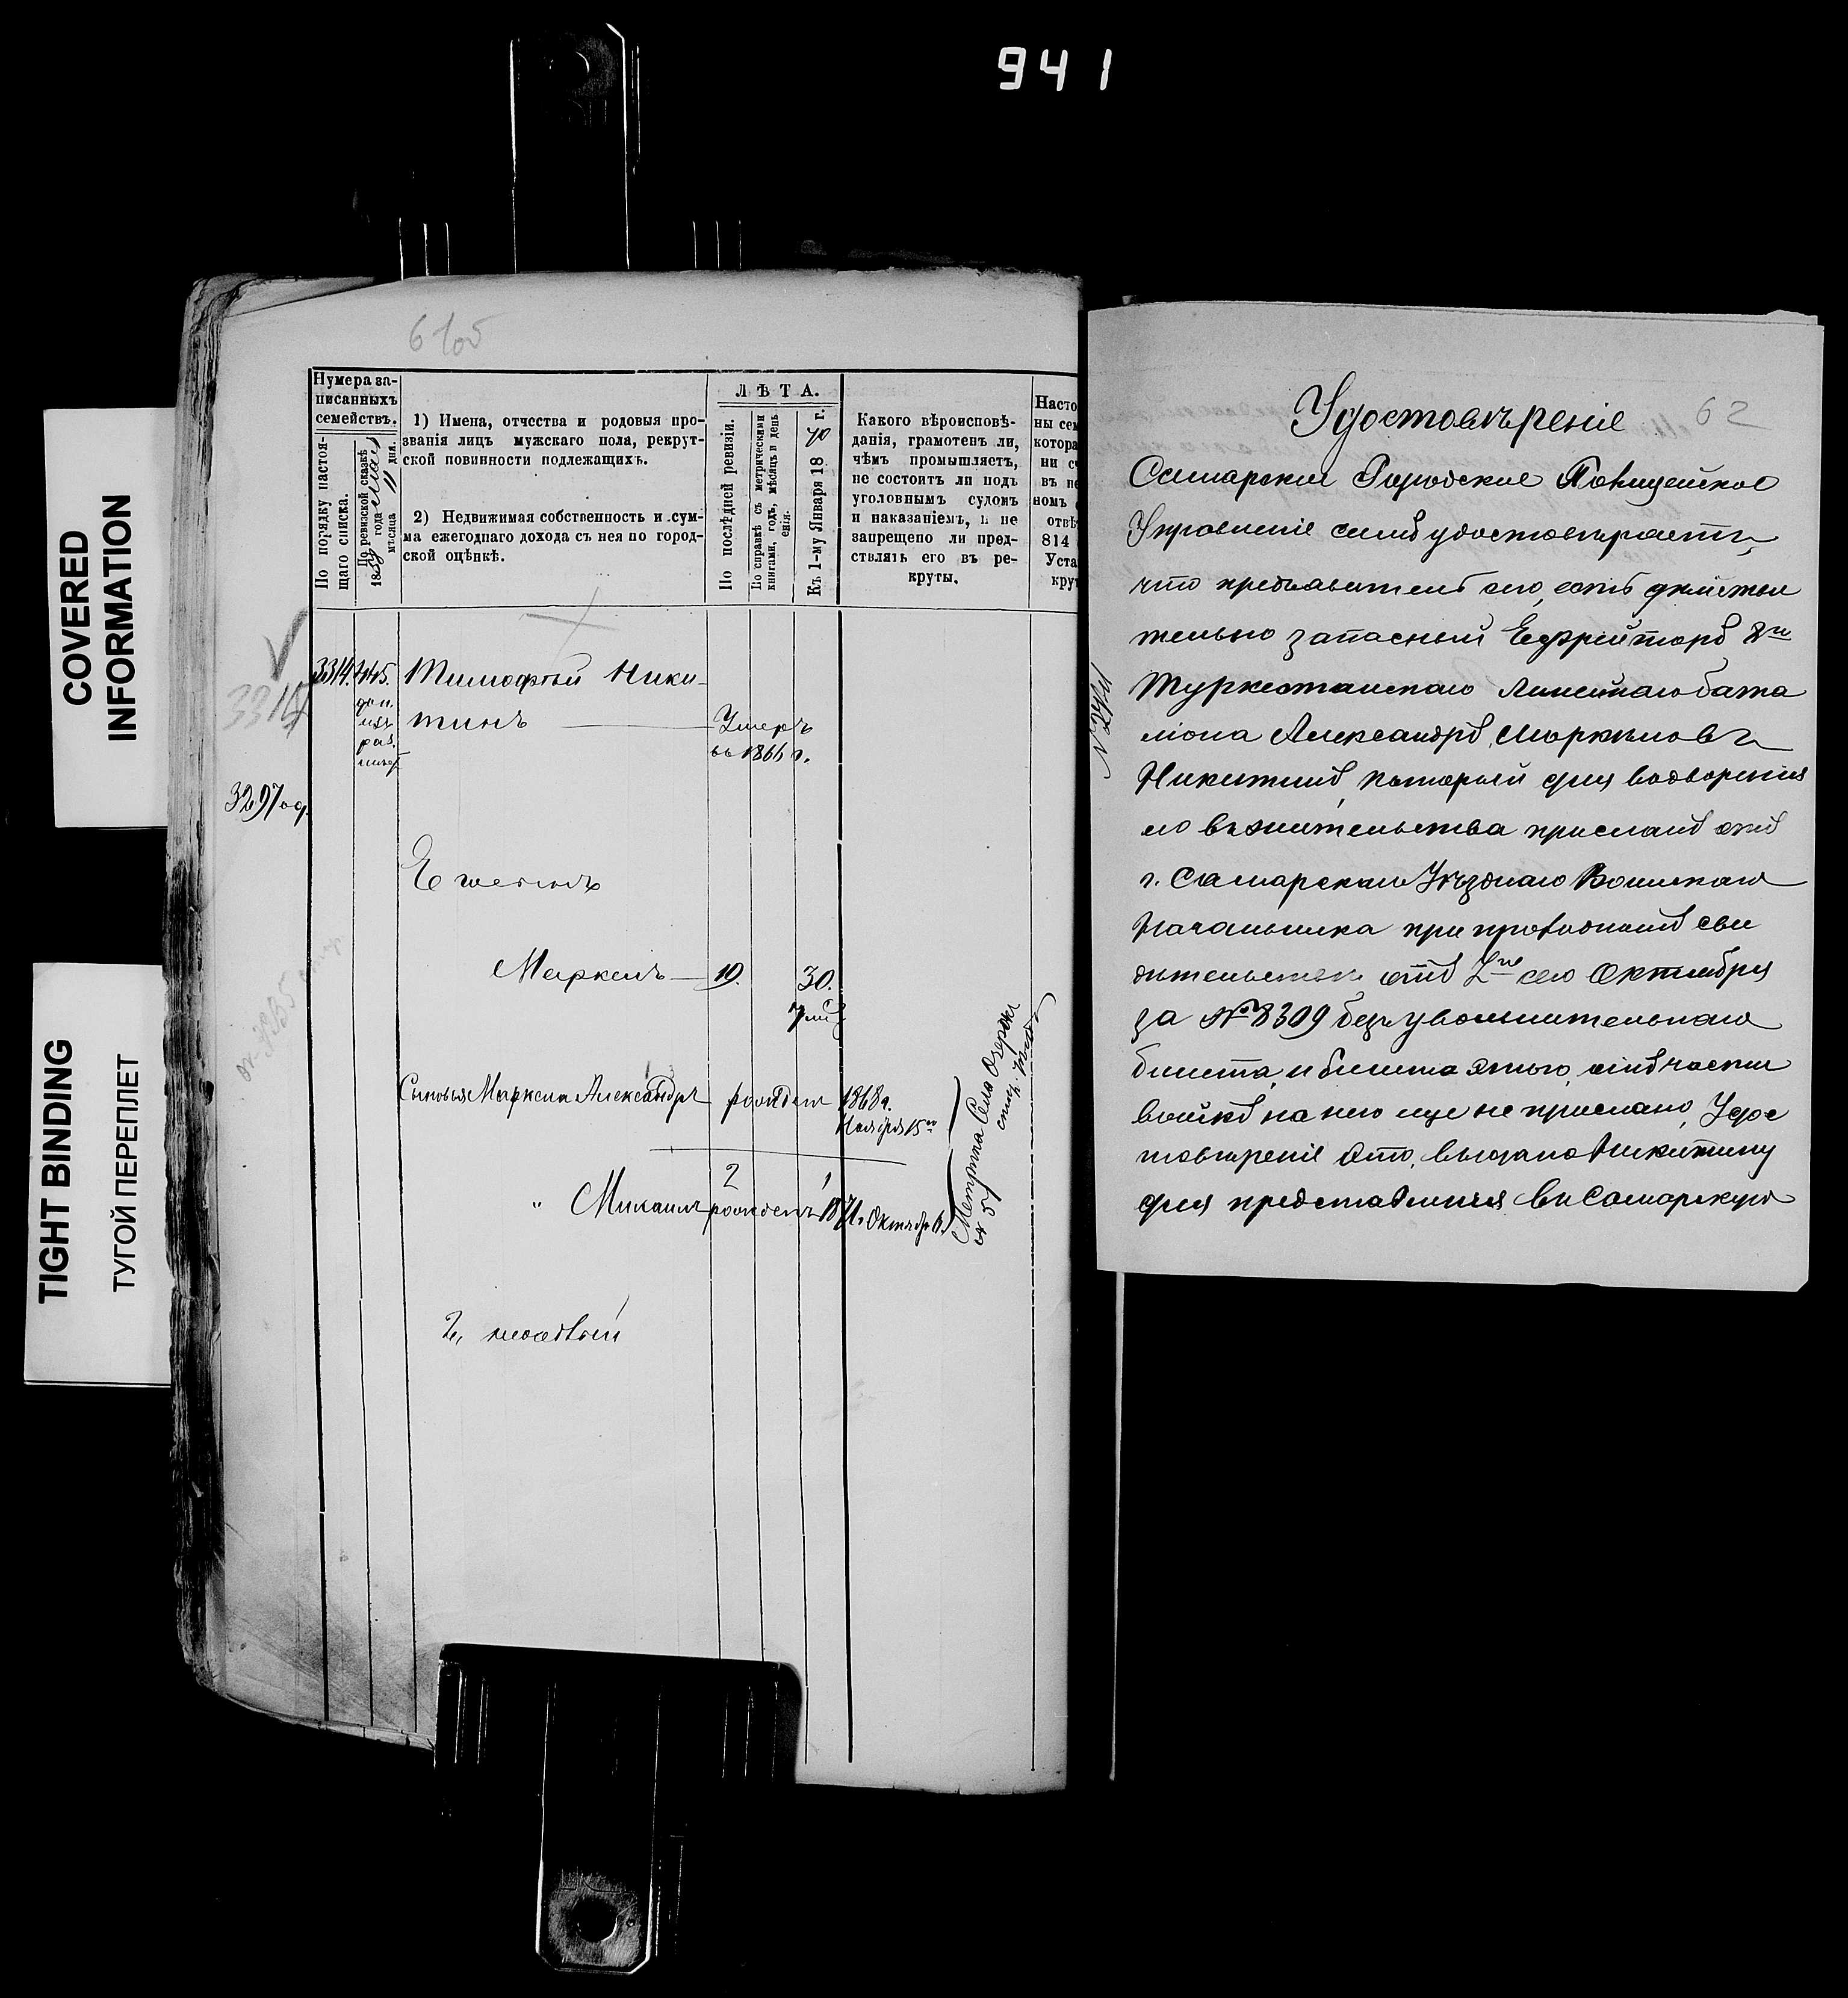 941
COVERED
INFORMATION
TIGHT BINDING
ТУГОЙ ПЕРЕПЛЕТ
61об
Нумера за-
писанныхъ
семействъ.
По порядку настоя-
щаго списка.
По ревизской сказкѣ
18 года
мѣсяца 11 дня.
1) Имена, отчества и родовыя про-
званія лицъ мужскаго пола, рекрут-
ской повинности подлежащихъ.
2) Недвижимая собственность и сум-
ма ежегоднаго дохода съ нея по город-
ской оцѣнкѣ.
ЛѢТА.
По послѣдней ревизіи.
По справкѣ съ метрическими
книгами, годъ, мѣсяцъ и день
Къ 1-му Января 18 70 г.
Какого вѣроисповѣ-
данія, грамотенъ ли,
чѣмъ промышляетъ,
не состоитъ ли подъ
уголовнымъ судомъ
и наказаніемъ, и не
запрещено ли пред-
ставлять его въ ре-
круты.
Насто
ны сем
котора
ни сч
въ не
номъ
отвѣ
814
Уста
кру
3314.
Тимофей Ники-
тинъ
Умеръ
въ 1866 г.
3297
Маркелъ 19. 30.
Сыновья Маркела Александръ рожден 1868 г.
Ноября 15
2 1
" Михаилъ рожденъ 1871. Октября 6.
Метрика Села Озерки
№ 5
62
Удостовѣреніе
Самарское Городское Полицейское
Управленіе симъ удостовѣряетъ,
что предъявитель сего, есть действи
тельно запасный Ефрейторъ 8го
Туркестанскаго Линейнаго бата
ліона Александръ Маркеловъ
Никитинъ, который для водворенія
его въ жительства присланъ отъ
г. Самарскаго Уѣзднаго Воинскаго
Начальника при проводномъ сви
дѣтельствѣ отъ 2го сего Октября
за № 8309 безъ увольнительнаго
билета, и билета этого, отъ части
войскъ на него еще не прислано, Удос
товѣреніе это, выдано Никитину
для представленія въ Самарскую